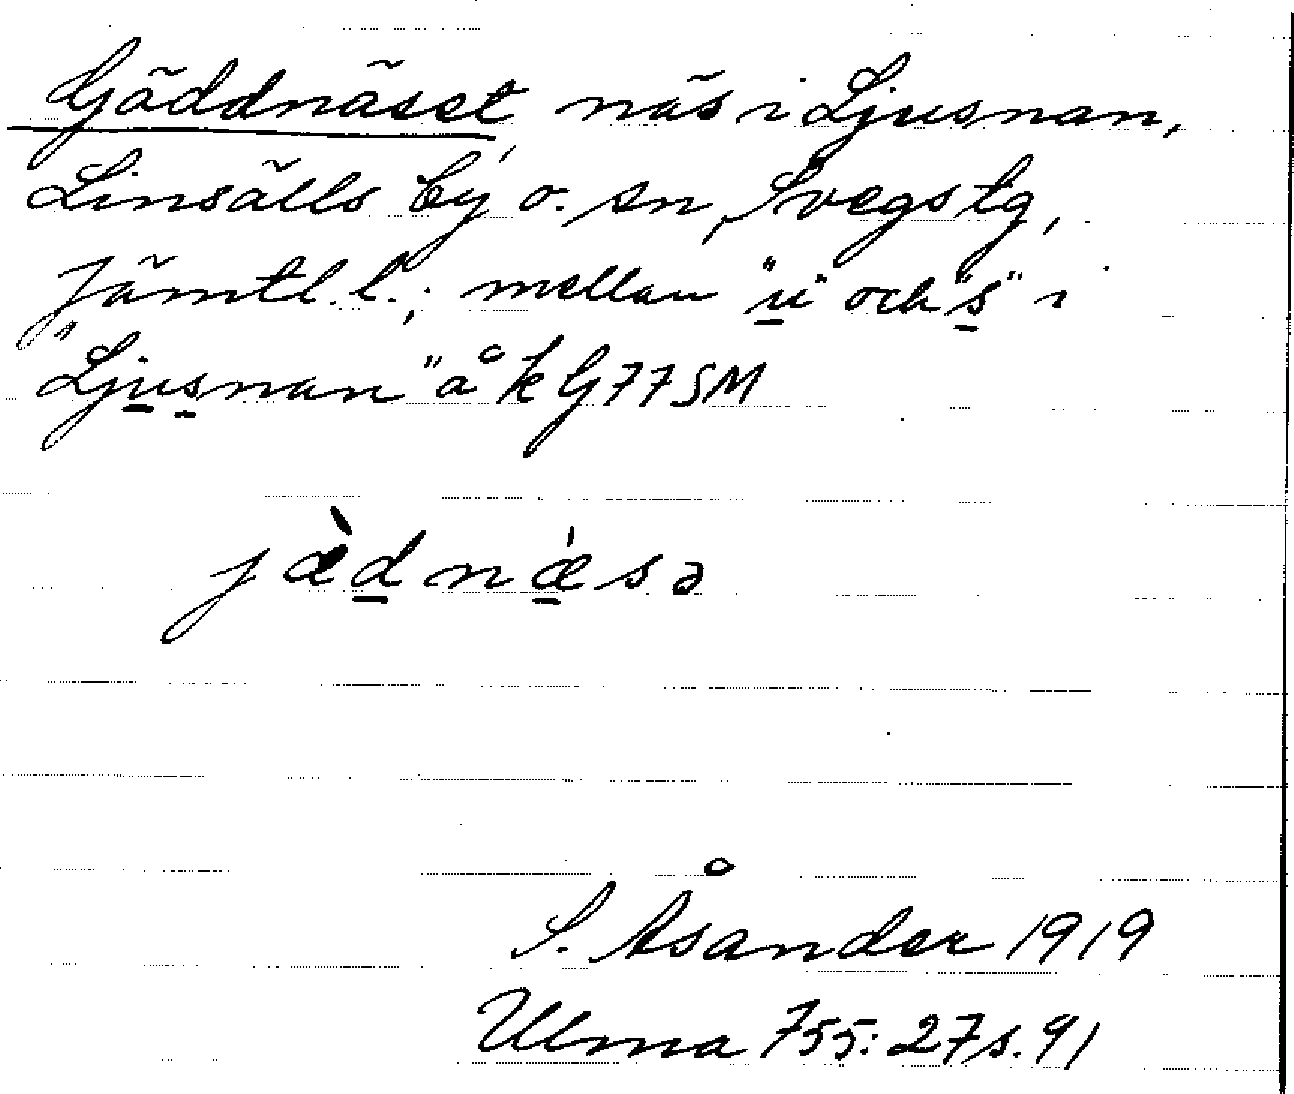 Gäddnäset, näs i Ljusnan,
Linsälls by o. sn, Svegs tg,
Jämtl. l.; mellan "u" och "s" i
"Ljusnan" å k G77SM
jæ̀dnæ̍sə
S. Åsander 1919
Ulma 755:27 s. 91